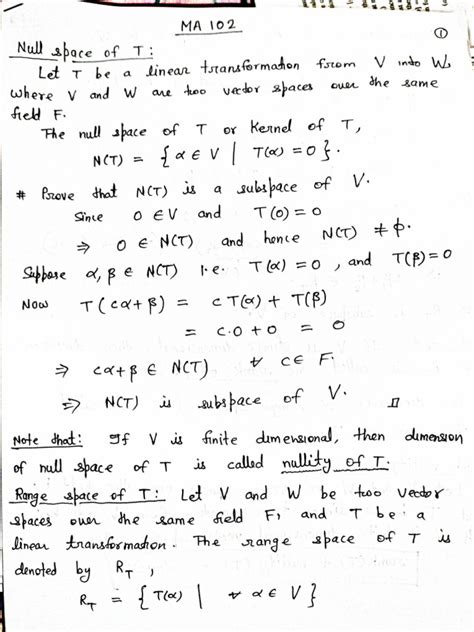 MA 102
①
Null space of T:
Let T be a linear transformation from V into W,
where V and W are two vector spaces over the same
field F.
The null space of T or Kernel of T,
N(T) = { α ∈ V | T(α) = 0 }.
# Prove that N(T) is a subspace of V.
Since 0 ∈ V and T(0) = 0
⇒ 0 ∈ N(T) and hence N(T) ≠ ϕ.
Suppose α, β ∈ N(T) i.e. T(α) = 0, and T(β) = 0
Now T(cα+β) = cT(α) + T(β)
= c.0 + 0 = 0
⇒ cα+β ∈ N(T) ∀ c ∈ F.
⇒ N(T) is subspace of V.
Note that: If V is finite dimensional, then dimension
of null space of T is called nullity of T.
Range space of T: Let V and W be two vector
spaces over the same field F, and T be a
linear transformation. The range space of T is
denoted by R_T,
R_T = { T(α) | ∀ α ∈ V }